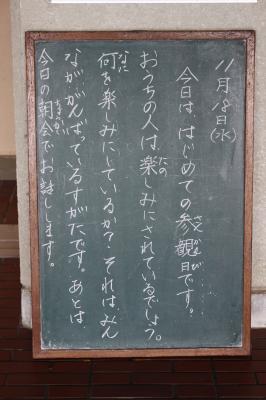 11月18日(水)
今日は、はじめての参観日です。
おうちの人は、楽しみにされているでしょう。
何を楽しみにしているか?それは、みん
ながんばっているすがたです。あとは、
今日の朝会でお話しします。